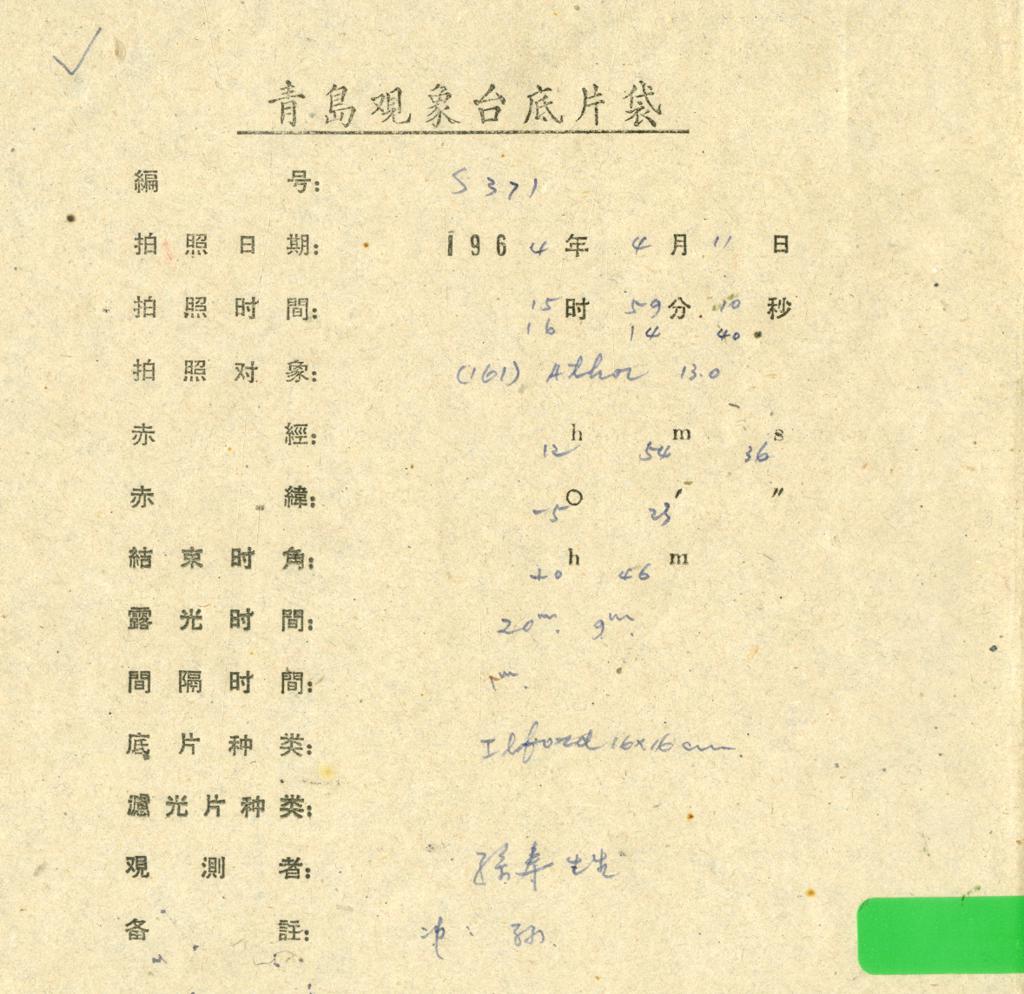 青島观象台底片袋
編号: S371
拍照日期: 1964年4月11日
拍照时間: 15时59分.10秒
16 14 40
拍照对象: (161) Athor 13.0
赤經: 12h 54m 36s
赤緯: -5° 23′ ″
結束时角: +0h 46m
露光时間: 20m. 9m.
間隔时間: 1m.
底片种类: Ilford 16×16cm
濾光片种类:
观測者: 孫寿
备註: 冲.